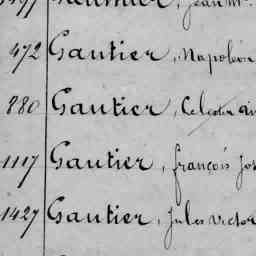 Jean M.
472 Gautier, Napoléon
880 Gautier, Celestin
1117 Gautier, françois Jos
1427 Gautier, Jules Victor